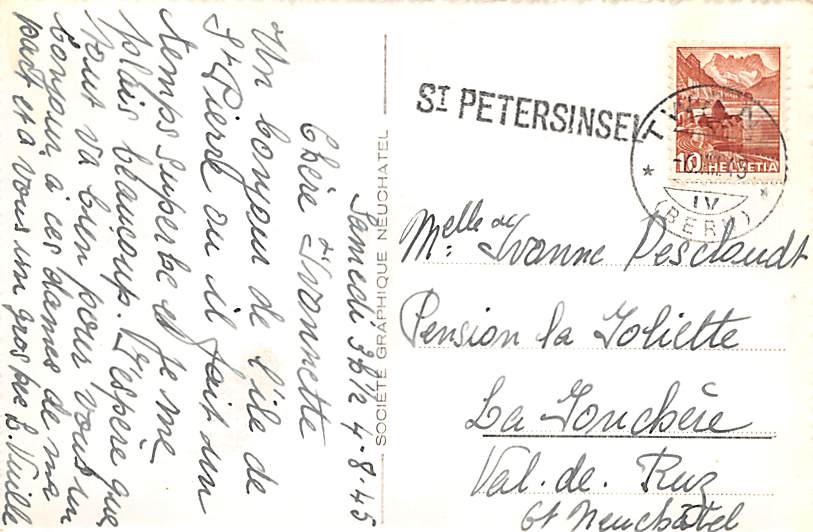 Samedi 3h½ 4-8-45
Chère Yvonnette
Un bonjour de l'île de
St Pierre ou il fait un
temps superbe et je me
plais beaucoup. J'espère que
tout va bien pour vous un
bonjour à ces dames de ma
part et a vous un gros bec L. Vuille
SOCIÉTÉ GRAPHIQUE NEUCHATEL
ST PETERSINSEL
10 HELVETIA
IV
(BERN)
Melle Yvonne Descloudt
Pension la Joliette
La Jonchère
Val. de. Ruz
Ct Neuchâtel